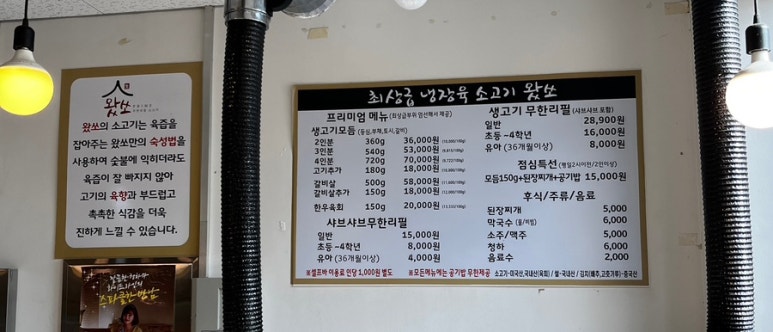 왔쏘
PRIME
왔쏘의 소고기는 육즙을
잡아주는 왔쏘만의 숙성법을
사용하여 숯불에 익히더라도
육즙이 잘 빠지지 않아
고기의 육향과 부드럽고
촉촉한 식감을 더욱
진하게 느낄 수 있습니다.
최상급 냉장육 소고기 왔쏘
프리미엄 메뉴 (최상급부위 엄선해서 제공)
생고기모듬 (등심,부채,토시,갈비)
2인분 360g 36,000원
3인분 540g 53,000원
4인분 720g 70,000원
고기추가 180g 18,000원
갈비살 500g 58,000원
갈비살추가 150g 18,000원
한우육회 150g 20,000원
샤브샤브무한리필
일반 15,000원
초등~4학년 8,000원
유아 (36개월이상) 4,000원
※셀프바 이용료 인당 1,000원 별도
생고기 무한리필 (샤브샤브 포함)
일반 28,900원
초등~4학년 16,000원
유아 (36개월이상) 8,000원
점심특선 (평일2시이전/2인이상)
모듬150g+된장찌개+공기밥 15,000원
후식/주류/음료
된장찌개 5,000
막국수 (물/비빔) 6,000
소주/맥주 5,000
청하 6,000
음료수 2,000
※모든메뉴에는 공기밥 무한제공
소고기-미국산,국내산(육회) / 쌀-국내산 / 김치(배추,고춧가루)-중국산